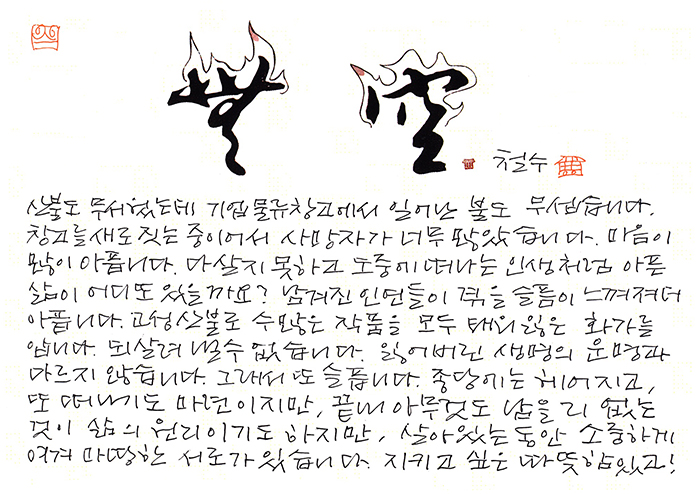 無 空
철수
산불도 무서웠는데 기업물류창고에서 일어난 불도 무섭습니다.
창고를새로짓는중이어서 사망자가 너무많았습니다. 마음이
많이 아픕니다. 다살지 못하고 도중에떠나는 인생처럼 아픈
삶이 어디또있을까요? 남겨진인연들이 겪을슬픔이 느껴져더
아픕니다. 고성산불로 수많은 작품을 모두 태워잃은 화가를
압니다. 되살려 낼수없습니다. 잃어버린 생명의 운명과
다르지 않습니다. 그래서 또 슬픕니다. 종당에는 헤어지고,
또 떠나기도 마련이지만, 끝내 아무것도 남을리 없는
것이 삶의 원리이기도 하지만, 살아있는동안 소중하게
여겨 마땅한 서로가있습니다. 지키고 싶은 따뜻함있고!